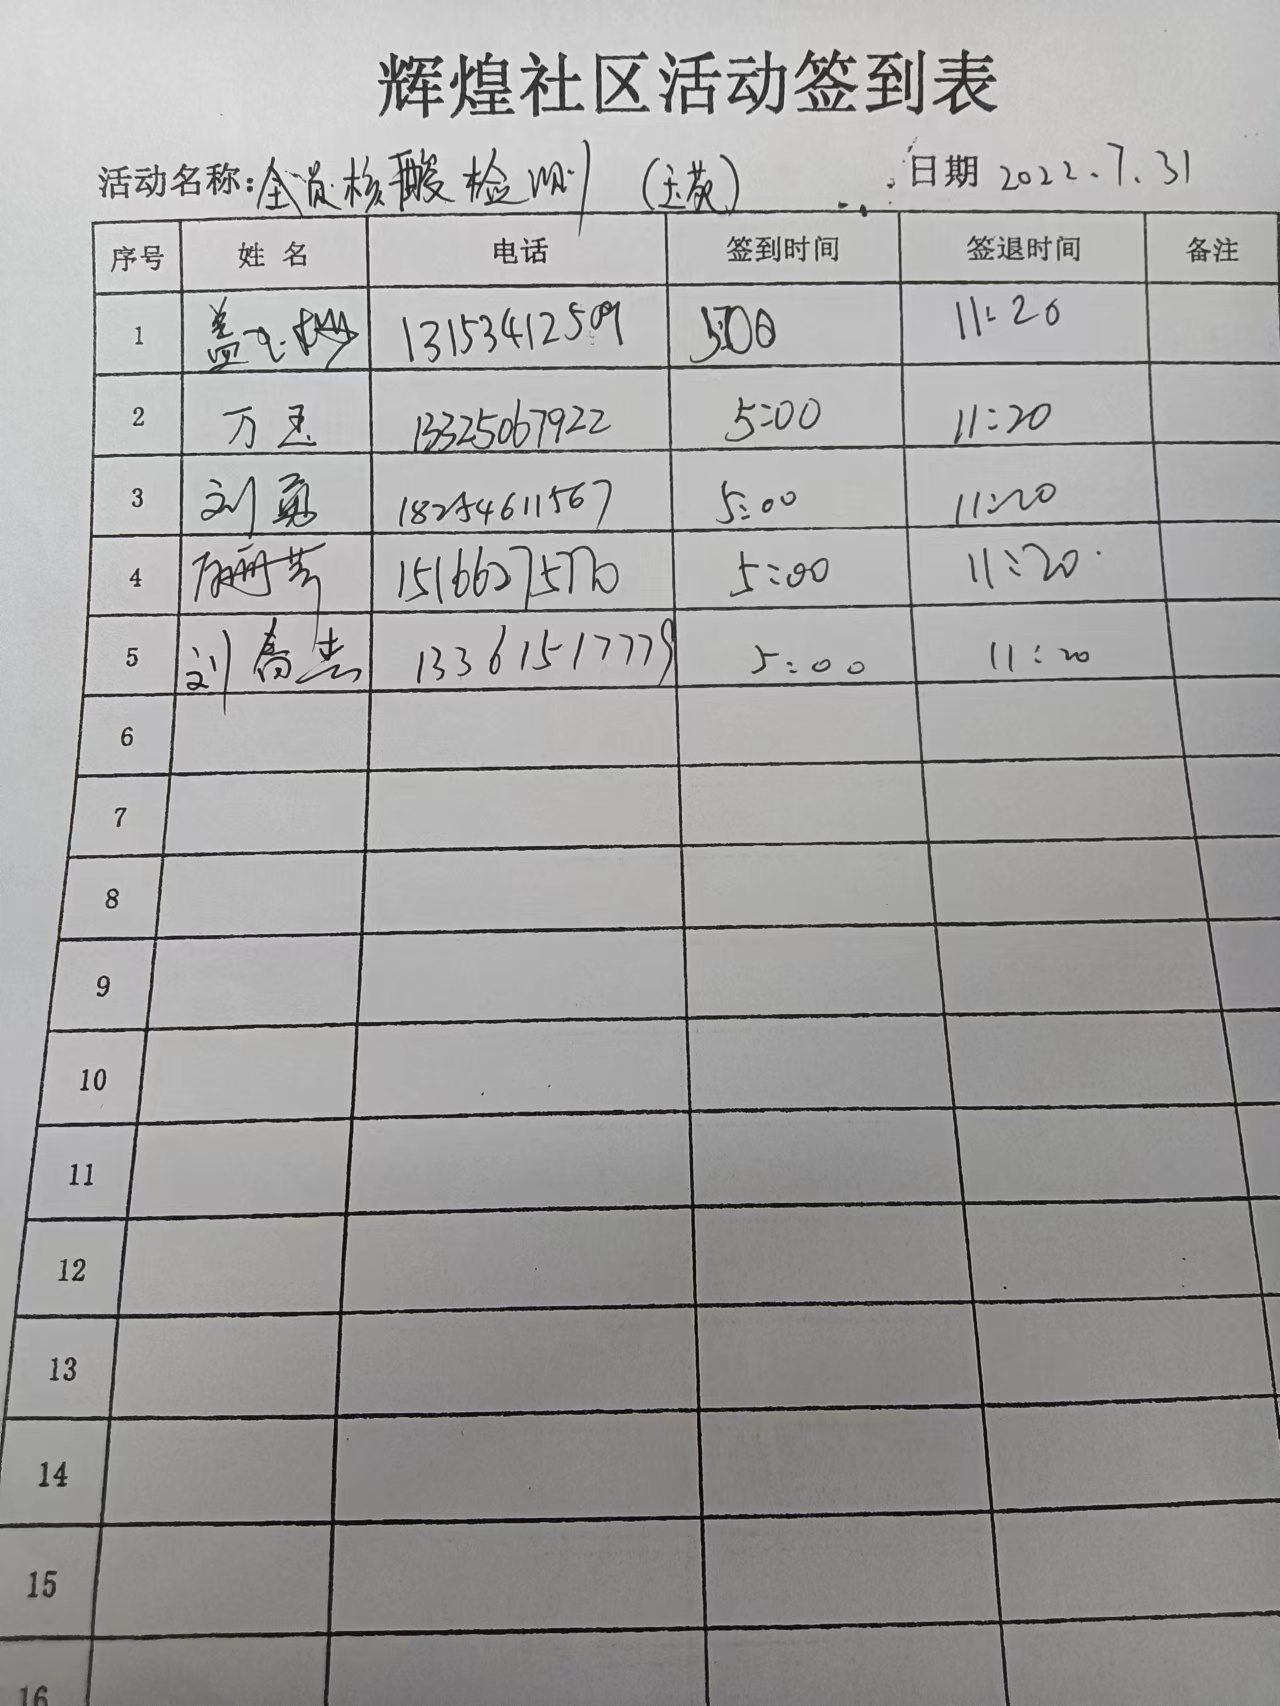 辉煌社区活动签到表
活动名称:全员核酸检测 日期 2022.7.31
序号 姓名 电话 签到时间 签退时间 备注
1 盖 13153412509 5:00 11:20
2 万玉 13325067922 5:00 11:20
3 刘勇 18254611567 5:00 11:20
4 15166275770 5:00 11:20
5 刘 杰 13361517779 5:00 11:20
6
7
8
9
10
11
12
13
14
15
16